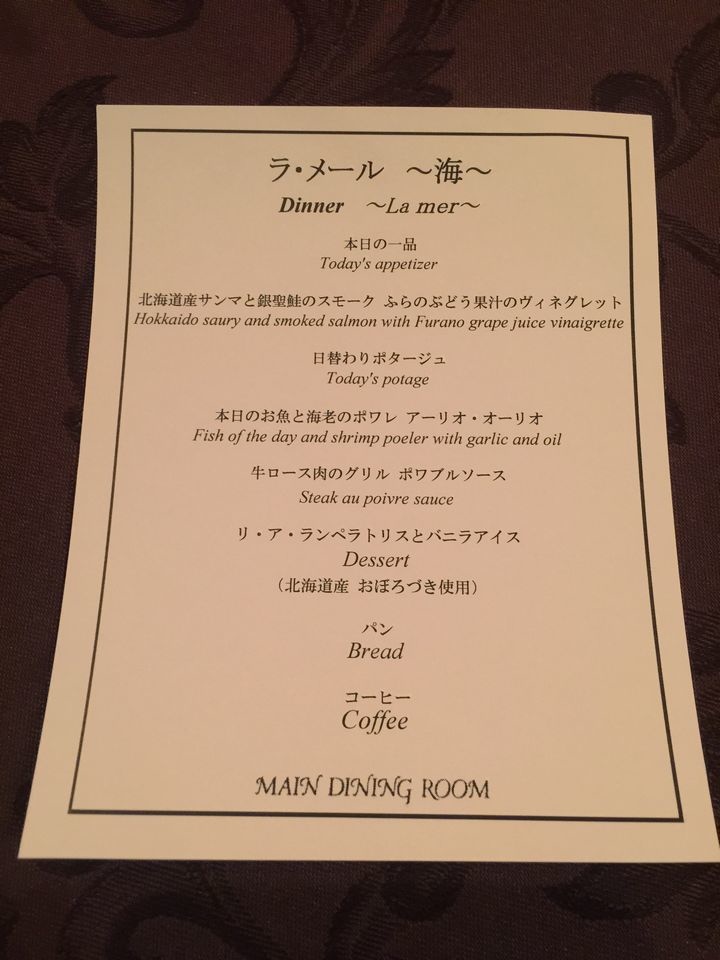 ラ・メール ～海～
Dinner ～La mer～
本日の一品
Today's appetizer
北海道産サンマと銀聖鮭のスモーク ふらのぶどう果汁のヴィネグレット
Hokkaido saury and smoked salmon with Furano grape juice vinaigrette
日替わりポタージュ
Today's potage
本日のお魚と海老のポワレ アーリオ・オーリオ
Fish of the day and shrimp poeler with garlic and oil
牛ロース肉のグリル ポワブルソース
Steak au poivre sauce
リ・ア・ランペラトリスとバニラアイス
Dessert
（北海道産 おぼろづき使用）
パン
Bread
コーヒー
Coffee
MAIN DINING ROOM